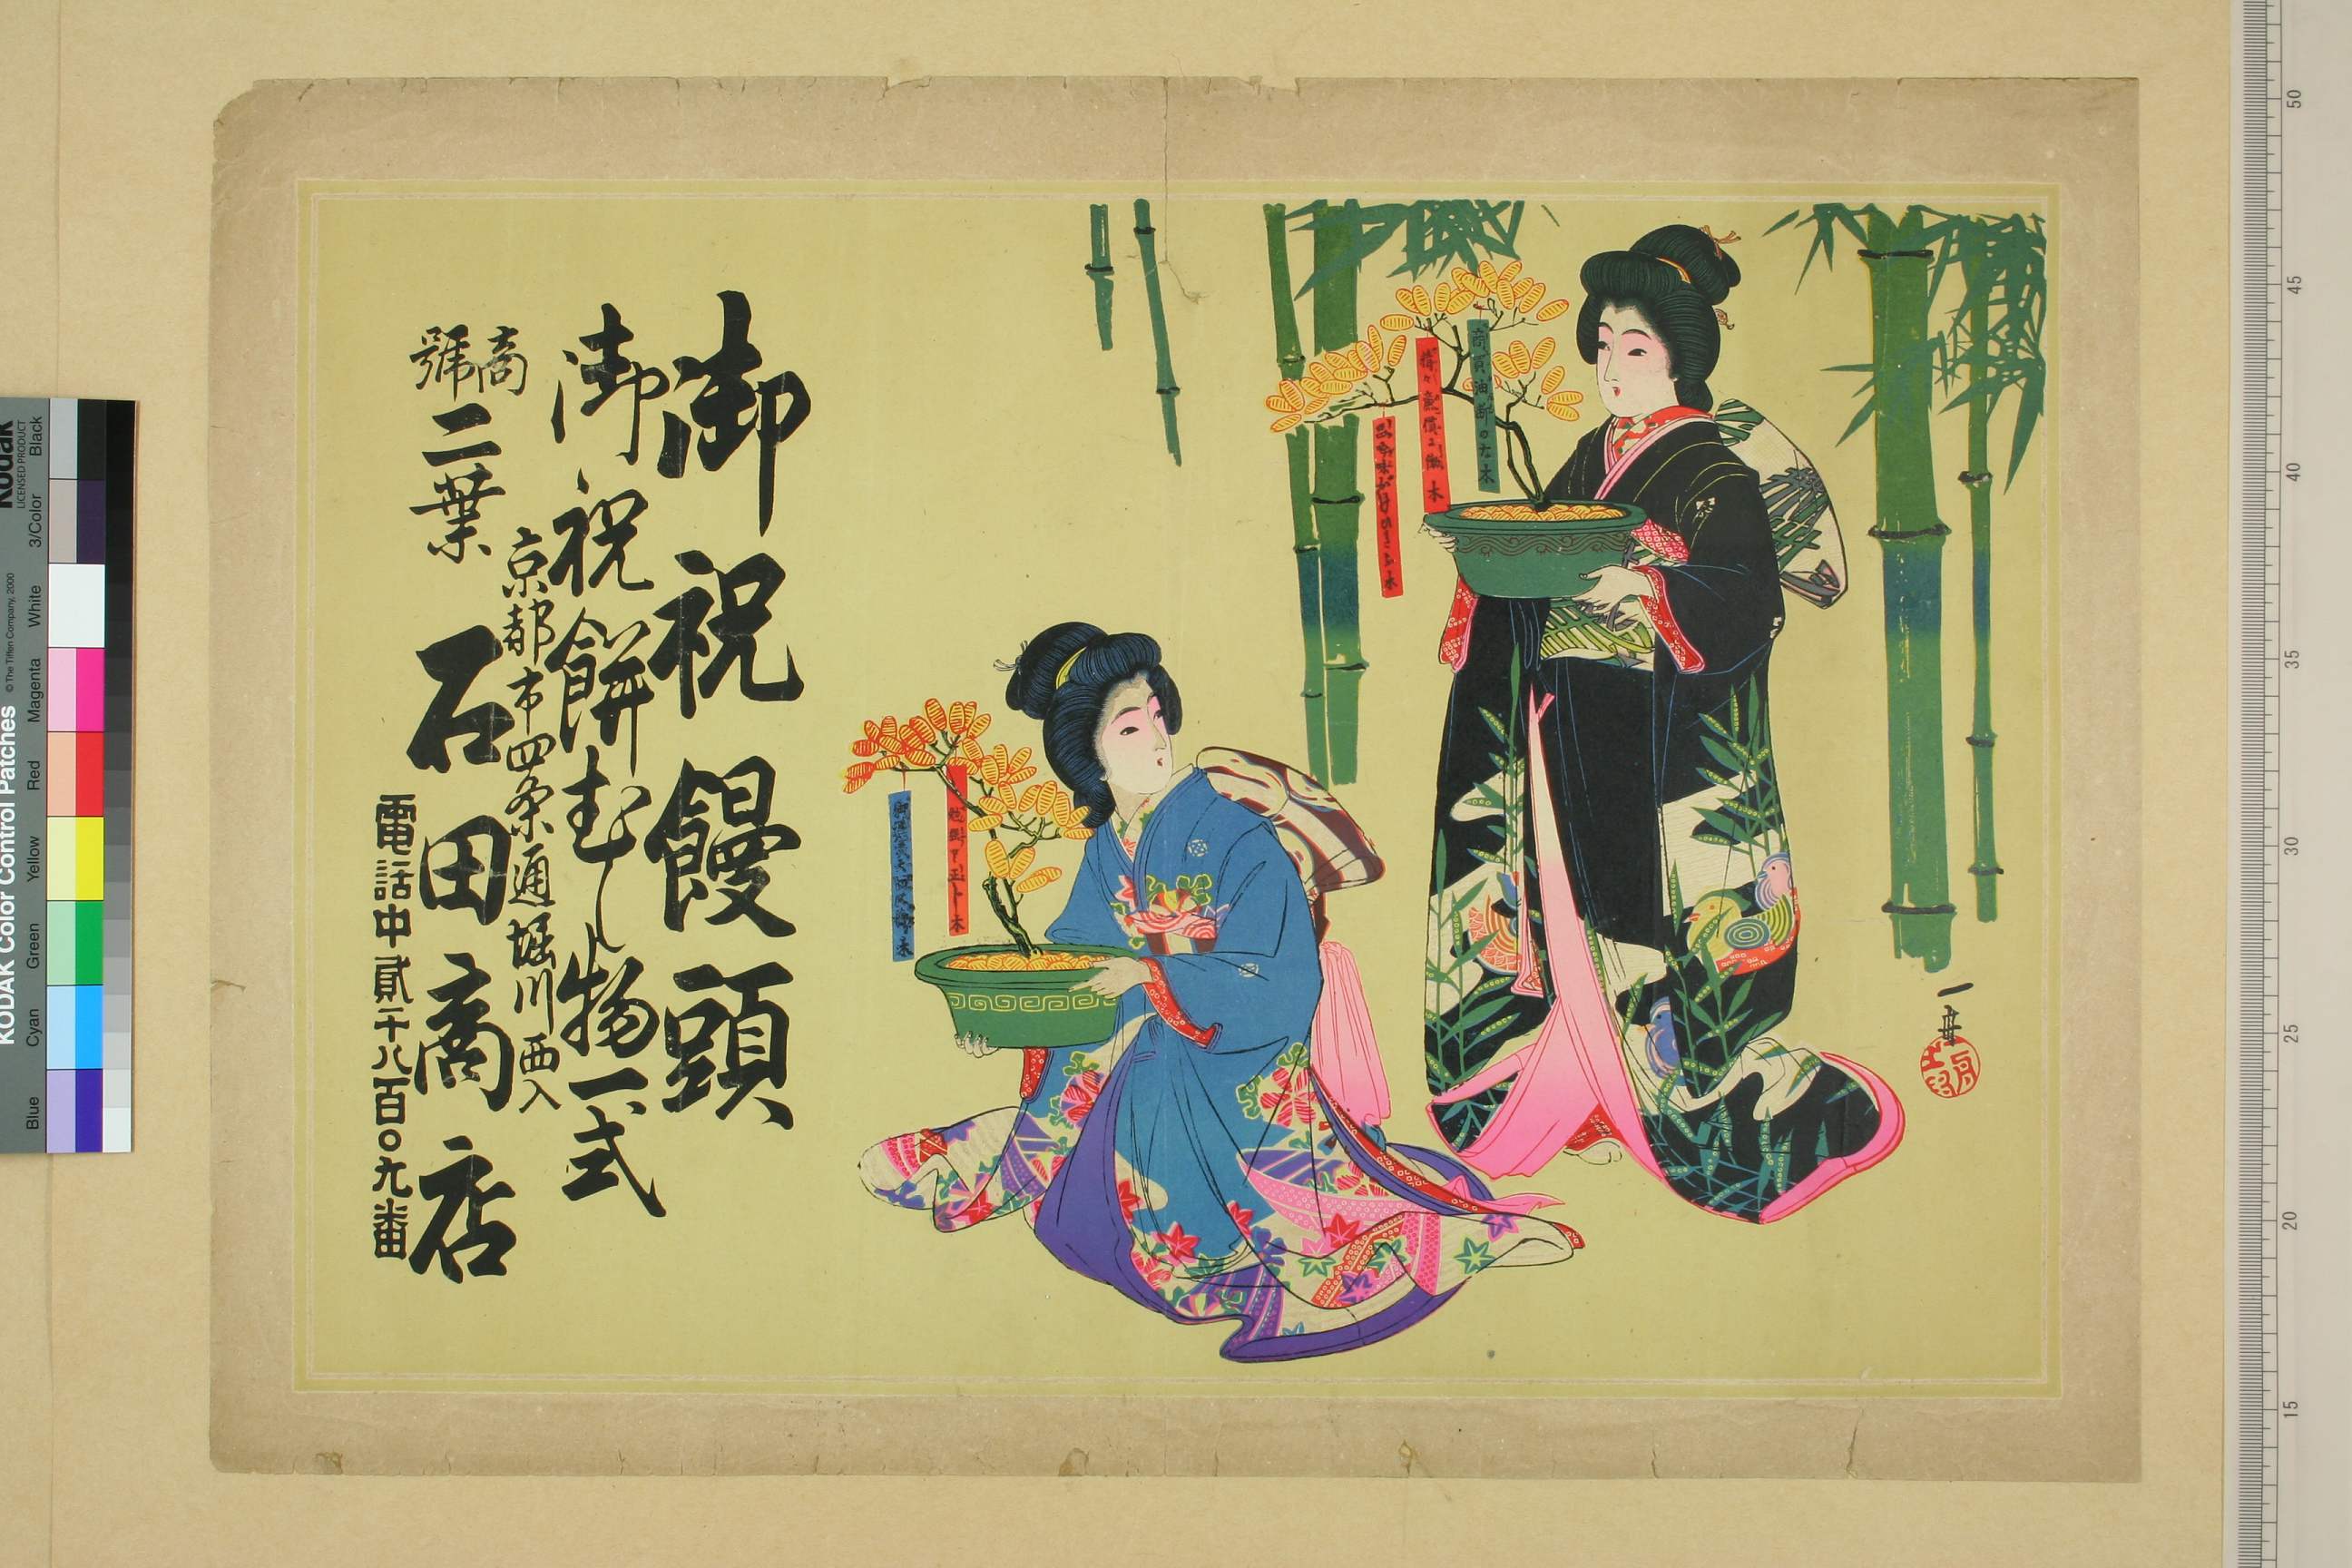 御祝饅頭
御祝餅むし物一式
京都市四条通堀川西入
商號 二葉 石田商店
電話中貳千八百〇九番
商買油断のな木
一舟
KODAK Color Control Patches
© The Tiffen Company, 2000
Kodak
LICENSED PRODUCT
Blue Cyan Green Yellow Red Magenta White 3/Color Black
50
45
40
35
30
25
20
15